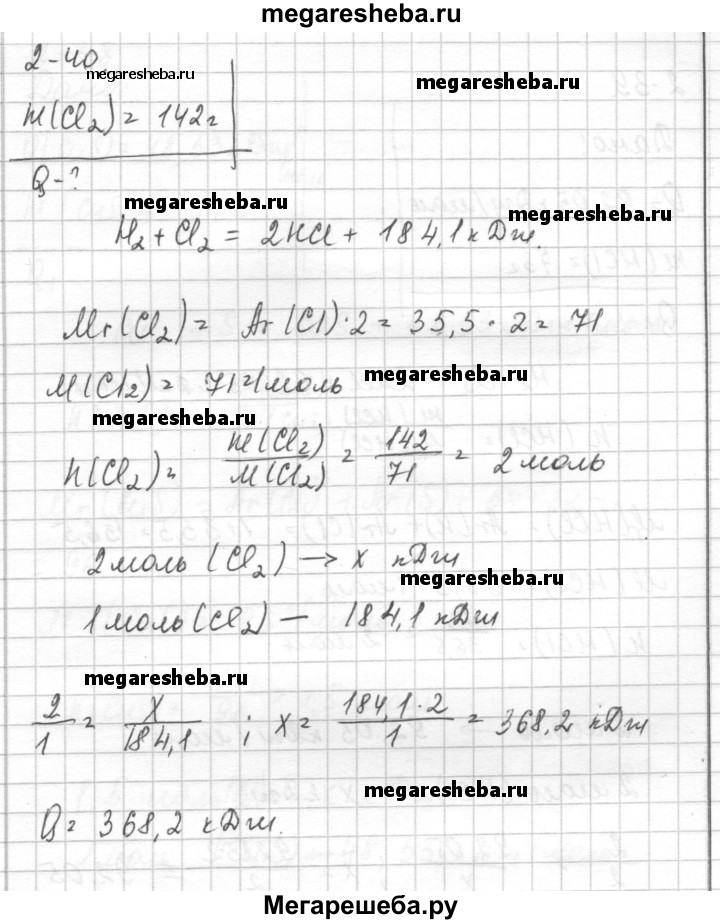 megaresheba.ru
2-40
megaresheba.ru
megaresheba.ru
m(Cl₂) = 142г
Q-?
megaresheba.ru
megaresheba.ru
H₂ + Cl₂ = 2HCl + 184,1 кДж.
Mr(Cl₂) = Ar(Cl)·2 = 35,5·2 = 71
megaresheba.ru
M(Cl₂) = 71г/моль
megaresheba.ru
n(Cl₂) = m(Cl₂)/M(Cl₂) = 142/71 = 2 моль
2 моль (Cl₂) → x кДж
megaresheba.ru
1 моль (Cl₂) — 184,1 кДж
megaresheba.ru
2/1 = x/184,1 ; x = 184,1·2/1 = 368,2 кДж
megaresheba.ru
Q = 368,2 кДж.
Мегарешеба.ру